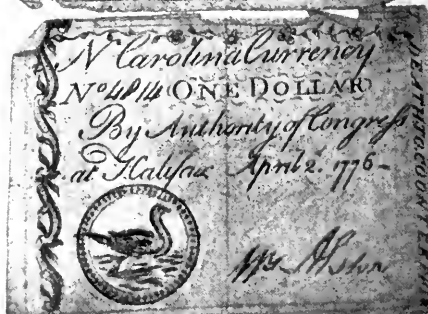 N Carolina Currency
No 4814 ONE DOLLAR
By Authority of Congress
at Halifax April 2. 1776-
DEATH TO COUNTERFEIT